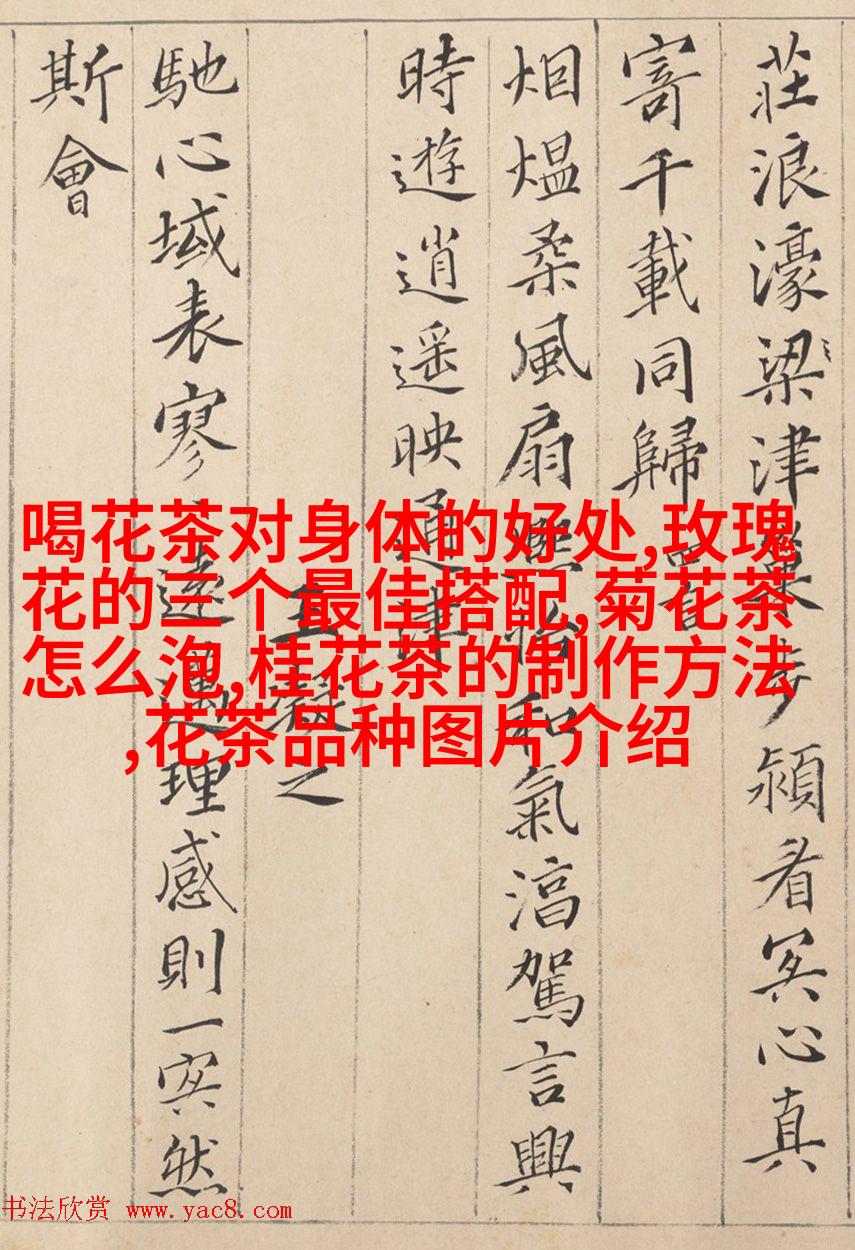 莊浪濠梁津巢步潁冥心真
寄千載同歸
烟煴柔風扇熙怡和氣淳駕言興
時遊逍遙映通津
王凝之
馳心域表寥〻遠邁理感則一冥然
斯會
喝花茶对身体的好处,玫瑰
花的三个最佳搭配,菊花茶
怎么泡,桂花茶的制作方法
,花茶品种图片介绍
书法欣赏 www.yac8.com